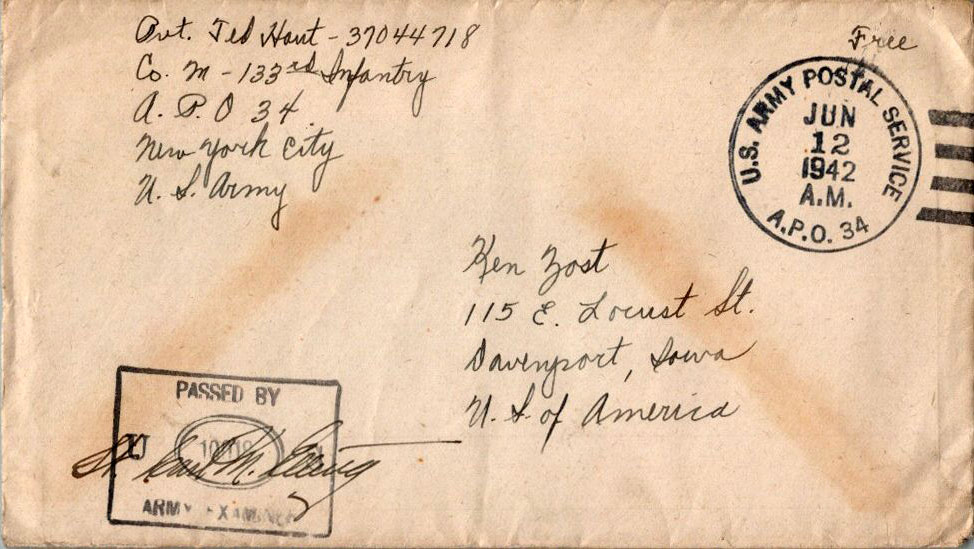 Pvt. Ted Hout - 37044718
Co. M - 133rd Infantry
A. P. O 34
New York City
U. S. Army
Free
U.S. ARMY POSTAL SERVICE
JUN
12
1942
A.M.
A.P.O. 34
Ken Yost
115 E. Locust St.
Davenport, Iowa
U. S. of America
PASSED BY
ARMY EXAMINER